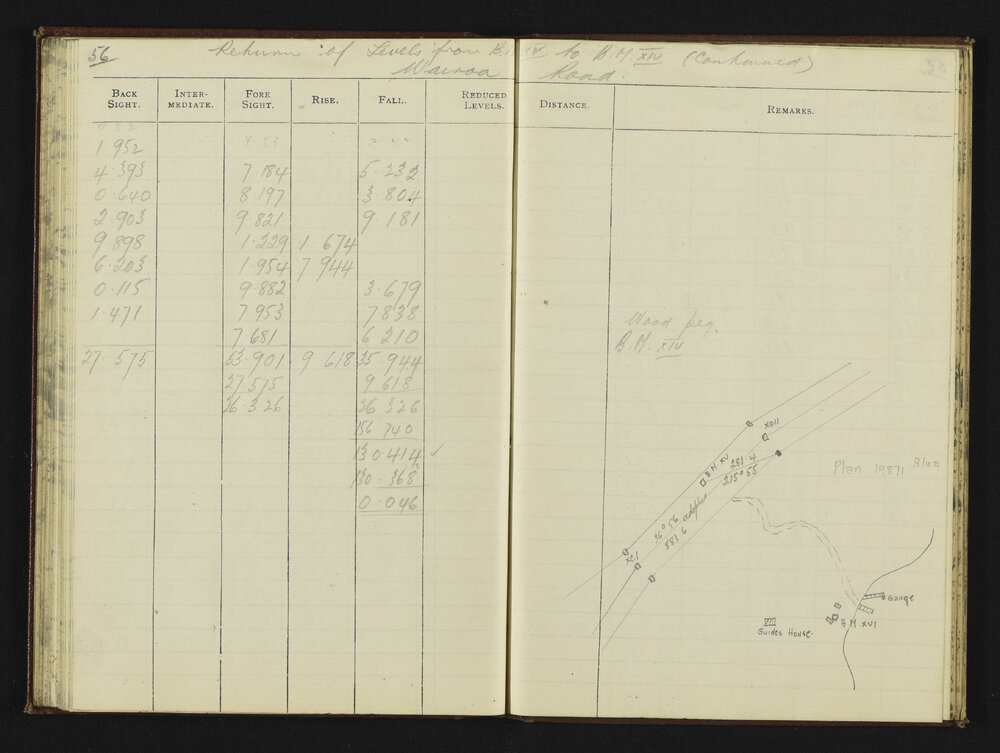 56
Return of Levels from B. XV to B.M. XIV (Continued)
Wairoa Road.
BACK SIGHT. INTER-MEDIATE. FORE SIGHT. RISE. FALL. REDUCED LEVELS. DISTANCE. REMARKS.
1.952
4.393 7.184 5.232
0.640 8.197 3.804
2.903 9.821 9.181
9.898 1.229 1.674
6.203 1.954 7.944
0.115 9.882 3.679
1.471 7.953 7.838
7.681 6.210
Wood peg.
B.M. XIV
27.575 53.901 9.618 35.944
27.575 9.618
26.326 26.326
156.740
130.414 ✓
130.368
0.046
XCII
B M XV
281.4
215°55
Plan 19871 Blue
36°56 adopted
881.6
XCI
Gauge
B M XVI
Guides House.